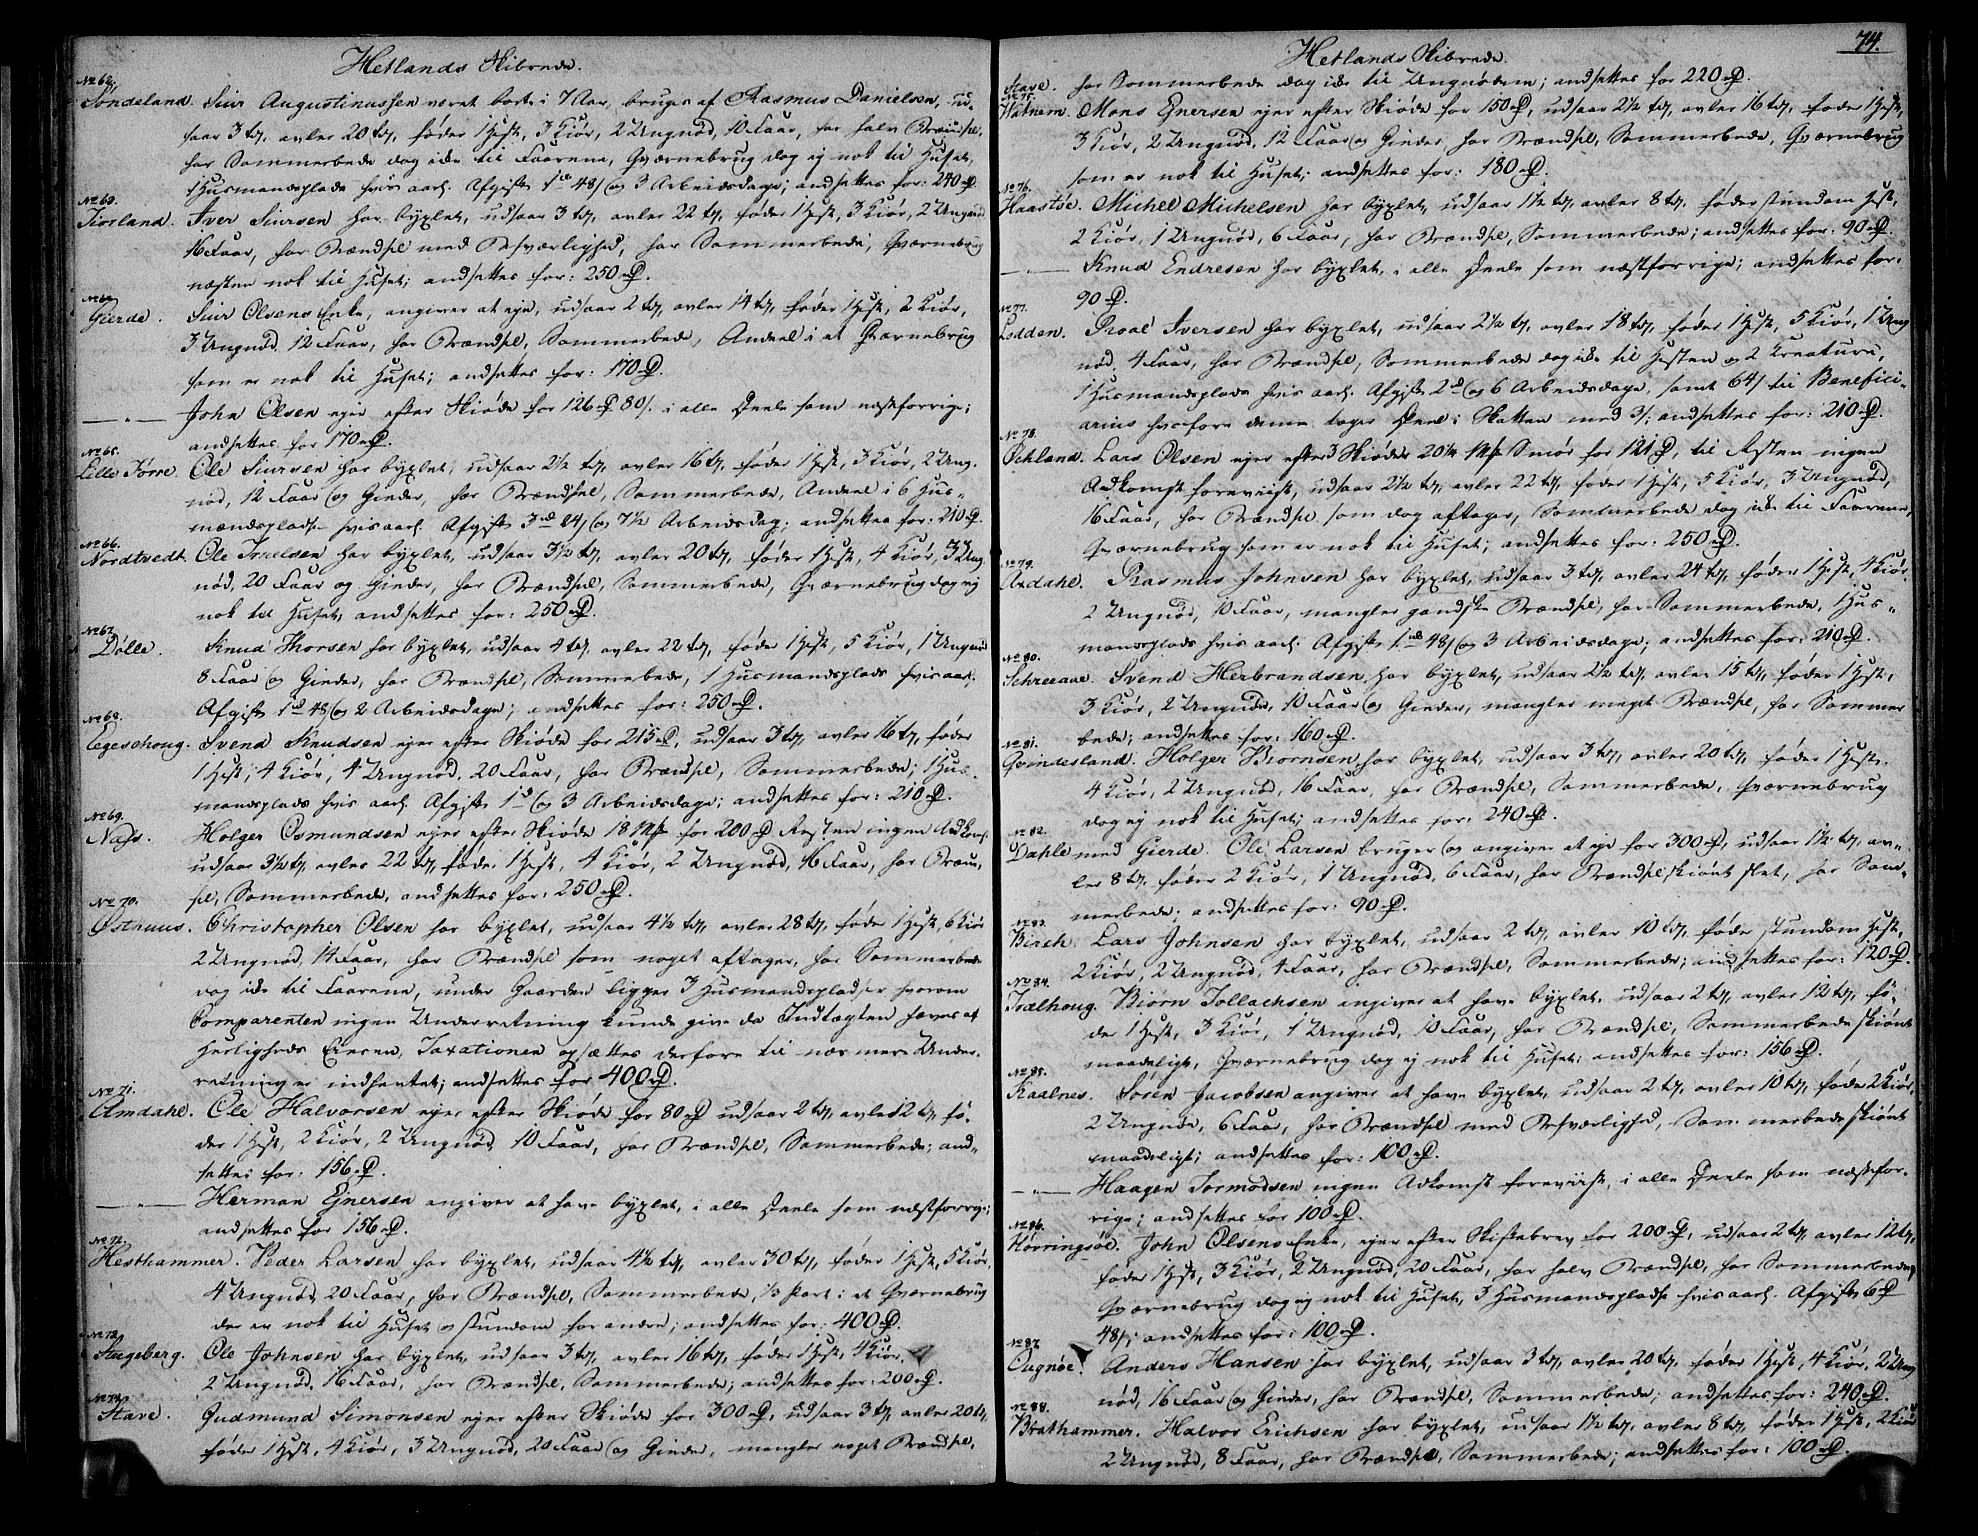 Hetlands Skibrede.
No 62.
Söndeland. Siur Augustinussen været borte i 7 Aar, bruges af Rasmus Danielsen, ud-
saar 3 tdr, avler 20 tdr, föder 1 Hest, 3 Kiör, 2 Ungnöd, 10 Faar, har halv Brændsel,
har Sommerbede dog ikke til Faarene, Qværnebrug dog ej nok til Huset,
1 Husmandsplads hvis aarl. Afgift 1 rd 48 s og 3 Arbeidsdage; andsettes for: 240 rD.
No 63.
Tiorland. Sver Siursen har byxlet, udsaar 3 tdr, avler 22 tdr, föder 1 Hest, 3 Kiör, 2 Ungnöd
16 Faar, har Brændsel med Besværlighed, har Sommerbede, Qværnebrug
næsten nok til Huset; andsettes for: 250 rD.
No 64.
Gierde. Siur Olsens Enke, angiver at eje, udsaar 2 tdr, avler 14 tdr, föder 1 Hest, 2 Kiör,
3 Ungnöd, 12 Faar, har Brændsel, Sommerbede, Andeel i et Qværnebrug
som er nok til Huset; andsettes for: 170 rD.
— „ — John Olsen ejer efter Skiöde for 126 rD 80 s. i alle Deele som næstforrige;
andsettes for 170 rD.
No 65.
Lille Törre. Ole Siursen har byxlet, udsaar 2 1/2 tdr, avler 16 tdr, föder 1 Hest, 3 Kiör, 2 Ung-
nöd, 12 Faar og Gieder, har Brændsel, Sommerbede, Andeel i 6 Hus-
mandspladse hvis aarl. Afgift 3 rd 24 s og 7 1/2 Arbeidsdag; andsettes for: 210 rD.
No 66.
Nordtvedt. Ole Iversen har byxlet, udsaar 3 1/2 tdr, avler 20 tdr, föder 1 Hest, 4 Kiör, 3 Ung-
nöd, 20 Faar og Gieder, har Brændsel, Sommerbede, Qværnebrug dog ej
nok til Huset, andsettes for: 250 rD.
No 67.
Dölle. Knud Thorsen har byxlet, udsaar 4 tdr, avler 22 tdr, föder 1 Hest, 5 Kiör, 1 Ungnöd
8 Faar og Gieder, har Brændsel, Sommerbede, 1 Husmandsplads hvis aarl.
Afgift 1 rd 48 s og 2 Arbeidsdage; andsettes for: 250 rD.
No 68.
Eegeschoug. Svend Knudsen ejer efter Skiöde for 215 rD, udsaar 3 tdr, avler 16 tdr, föder
1 Hest, 4 Kiör, 4 Ungnöd, 20 Faar, har Brændsel, Sommerbede; 1 Hus-
mandsplads hvis aarl. Afgift 1 rd og 3 Arbeidsdage; andsettes for: 210 rD.
No 69.
Næss. Holger Osmundsen ejer efter Skiöde 18 Mk for 200 rD Resten ingen Adkomst
udsaar 3 1/2 tdr, avler 22 tdr, föder 1 Hest, 4 Kiör, 2 Ungnöd, 16 Faar, har Brænd-
sel, Sommerbede, andsettes for: 250 rD.
No 70.
Östnuus. Christopher Olsen har byxlet, udsaar 4 1/2 tdr, avler 28 tdr, föder 1 Hest, 6 Kiör
2 Ungnöd, 14 Faar, har Brændsel som noget aftager, har Sommerbede
dog ikke til Faarene, under Gaarden ligger 3 Husmandspladser hvorom
Comparenten ingen Underretning kunde give da Indtægten hæves af
Herligheds Eieren, Taxationen opsættes derfore til nærmere Under-
retning er indhentet; andsettes for 400 rD.
No 71.
Amdahl. Ole Halvorsen ejer efter Skiöde for 80 rD udsaar 2 tdr, avler 12 tdr, fö-
der 1 Hest, 2 Kiör, 2 Ungnöd, 10 Faar, har Brændsel, Sommerbede; and-
settes for: 156 rD.
— „ — Herman Ejnersen angiver at have byxlet, i alle Deele som næstforrige;
andsettes for 156 rD.
No 72.
Hesthammer. Peder Larsen har byxlet, udsaar 4 1/2 tdr, avler 30 tdr, föder 1 Hest, 5 Kiör,
4 Ungnöd, 20 Faar, har Brændsel, Sommerbede, 1/3 Part i et Qværnebrug
der er nok til Huset og stundom for andre; andsettes for: 400 rD.
No 73.
Stugeberg. Ole Johnsen har byxlet, udsaar 3 tdr, avler 16 tdr, föder 1 Hest, 4 Kiör,
2 Ungnöd, 16 Faar, har Brændsel, Sommerbede; andsettes for: 200 rD.
No 74.
Stave. Gudmund Simonsen ejer efter Skiöde for 300 rD, udsaar 3 tdr, avler 20 tdr,
föder 1 Hest, 4 Kiör, 3 Ungnöd, 20 Faar og Gieder, mangler noget Brændsel,
Hetlands Skibrede.
74.
Stave. har Sommerbede dog ikke til Ungnödene; andsettes for 220 rD.
No 75.
Watnem. Mons Ejnersen ejer efter Skiöde for 150 rD, udsaar 2 1/2 tdr, avler 16 tdr, föder 1 Hest,
3 Kiör, 2 Ungnöd, 12 Faar og Gieder, har Brændsel, Sommerbede, Qværnebrug
som er nok til Huset; andsettes for: 180 rD.
No 76.
Haastöe. Michel Michelsen har byxlet, udsaar 1 1/2 tdr, avler 8 tdr, föder stundom Hest,
2 Kiör, 1 Ungnöd, 6 Faar, har Brændsel, Sommerbede; andsettes for: 90 rD.
— „ — Knud Endresen har byxlet, i alle Deele som næstforrige; andsettes for:
90 rD.
No 77.
Lodden. Roal Iversen har byxlet, udsaar 2 1/2 tdr, avler 18 tdr, föder 1 Hest, 5 Kiör, 1 Ung
nöd, 4 Faar, har Brændsel, Sommerbede dog ikke til Hesten og 2 Creature,
1 Husmandsplads hvis aarl. Afgift 2 rd og 6 Arbeidsdage, samt 64 s til Benefici-
arius hvorfore denne tager Deel i Skatten med 3 s; andsettes for: 210 rD.
No 78.
Öchland. Lars Olsen ejer efter 3 Skiöder 20 1/4 Mk Smör for 121 rD, til Resten ingen
Adkomst foreviist, udsaar 2 1/2 tdr, avler 22 tdr, föder 1 Hest, 5 Kiör, 3 Ungnöd,
16 Faar, har Brændsel som dog aftager, Sommerbede dog ikke til Faarene,
Qværnebrug som er nok til Huset; andsettes for: 250 rD.
No 79.
Axdahl. Rasmus Johnsen har byxlet, udsaar 3 tdr, avler 24 tdr, föder 1 Hest, 4 Kiör,
2 Ungnöd, 10 Faar, mangler gandske Brændsel, har Sommerbede, 1 Hus-
mandsplads hvis aarl. Afgift 1 rd 48 s og 3 Arbeidsdage; andsettes for: 210 rD.
No 80.
Schreeaue. Svend Herbrandsen har byxlet, udsaar 2 1/2 tdr, avler 15 tdr, föder 1 Hest,
3 Kiör, 2 Ungnöd, 10 Faar og Gieder, mangler meget Brændsel, har Sommer
bede; andsettes for: 160 rD.
No 81.
Qvindesland. Holger Biornsen har byxlet, udsaar 3 tdr, avler 20 tdr, föder 1 Hest,
4 Kiör, 2 Ungnöd, 16 Faar, har Brændsel, Sommerbede, Qværnebrug
dog ej nok til Huset; andsettes for: 240 rD.
No 82.
Dahle med Gierde. Ole Larsen bruger og angiver at eje for 300 rD, udsaar 1 1/2 tdr, av-
ler 8 tdr, föder 2 Kiör, 1 Ungnöd, 6 Faar, har Brændsel skiönt slet, har Som-
merbede; andsettes for: 90 rD.
No 83.
Birch. Lars Johnsen har byxlet, udsaar 2 tdr, avler 10 tdr, föder stundom Hest,
2 Kiör, 2 Ungnöd, 4 Faar, har Brændsel, Sommerbede; andsettes for: 120 rD.
No 84.
Tvælhoug. Biörn Tollachsen angiver at have byxlet, udsaar 2 tdr, avler 12 tdr, fö-
der 1 Hest, 3 Kiör, 1 Ungnöd, 10 Faar, har Brændsel, Sommerbede skiönt
maadeligt, Qværnebrug dog ej nok til Huset; andsettes for: 156 rD.
No 85.
Kaalnes. Sören Jacobsen angiver at have byxlet, udsaar 2 tdr, avler 10 tdr, föder 2 Kiör,
2 Ungnöd, 6 Faar, har Brændsel med Besværlighed, Sommerbede skiönt
maadeligt; andsettes for: 100 rD.
— „ — Haagen Tormodsen ingen Adkomst foreviist, i alle Deele som næstfor-
rige; andsettes for 100 rD.
No 86.
Hörringsöe. John Olsens Enke, ejer efter Skiftebrev for 200 rD, udsaar 2 tdr, avler 12 tdr,
föder 1 Hest, 3 Kiör, 2 Ungnöd, 20 Faar, har halv Brændsel, har Sommerbede,
Qværnebrug dog ej nok til Huset, 3 Husmandspladse hvis aarl. Afgift 6 rD
48 s; andsettes for: 100 rD.
No 87.
Augnöe. Anders Hansen har byxlet, udsaar 3 tdr, avler 20 tdr, föder 1 Hest, 4 Kiör, 2 Ung
nöd, 16 Faar og Gieder, har Brændsel, Sommerbede; andsettes for: 240 rD.
No 88.
Brathammer. Halvor Erichsen har byxlet, udsaar 1 1/2 tdr, avler 8 tdr, föder 1 Hest, 2 Kiör
2 Ungnöd, 8 Faar, har Brændsel, Sommerbede; andsettes for: 100 rD.